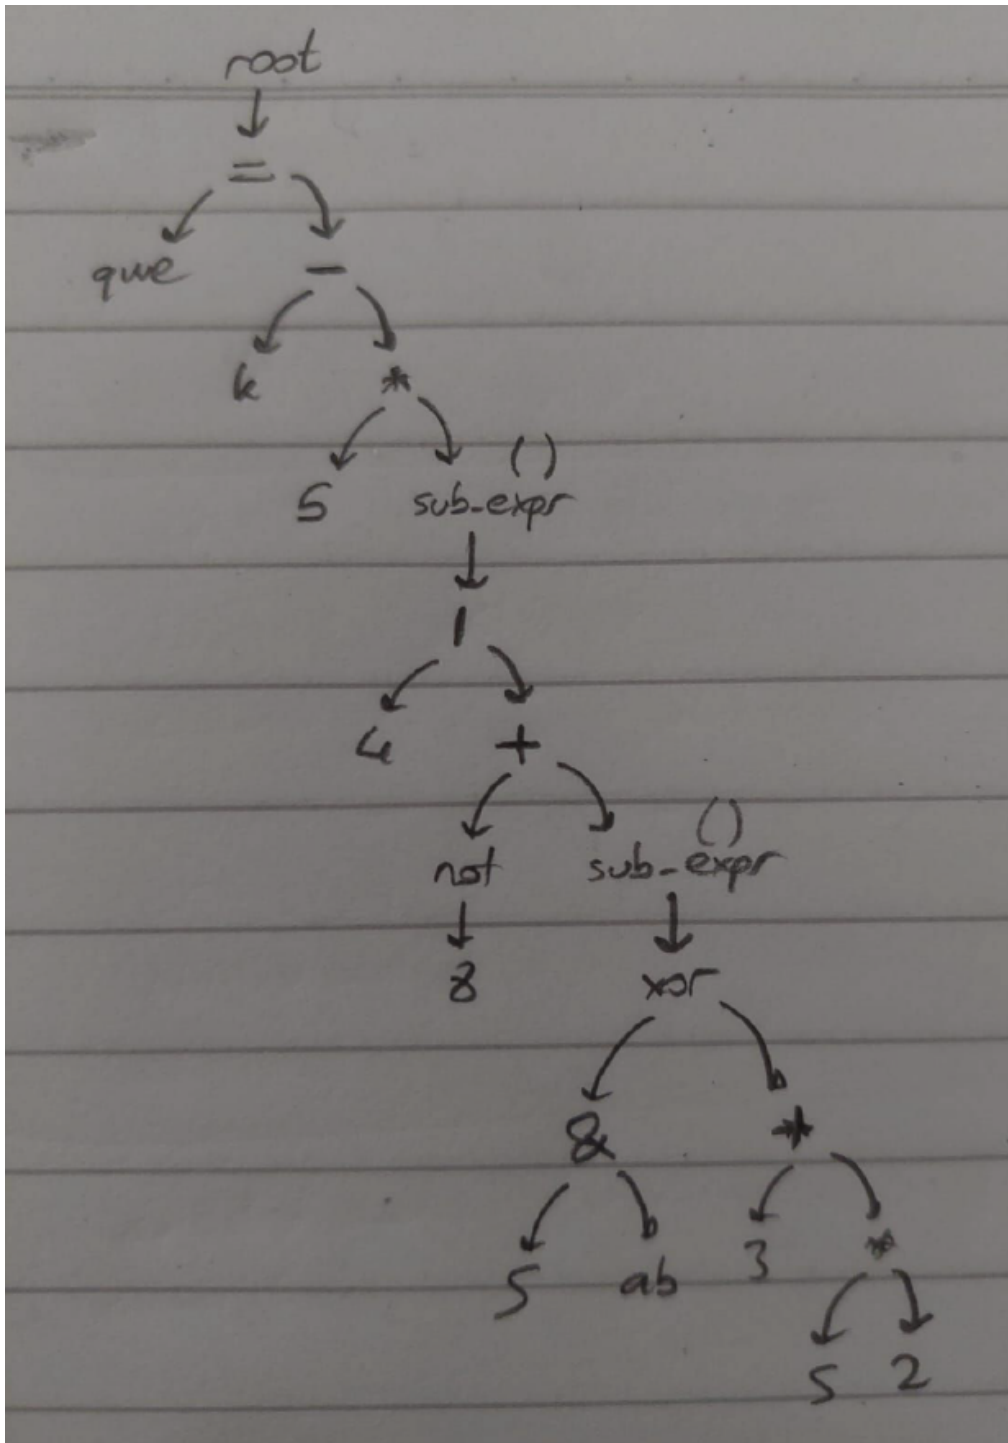 root
=
qwe -
k *
5 sub-expr ( )
|
4 +
not sub-expr ( )
8 xor
& *
5 ab 3 *
5 2